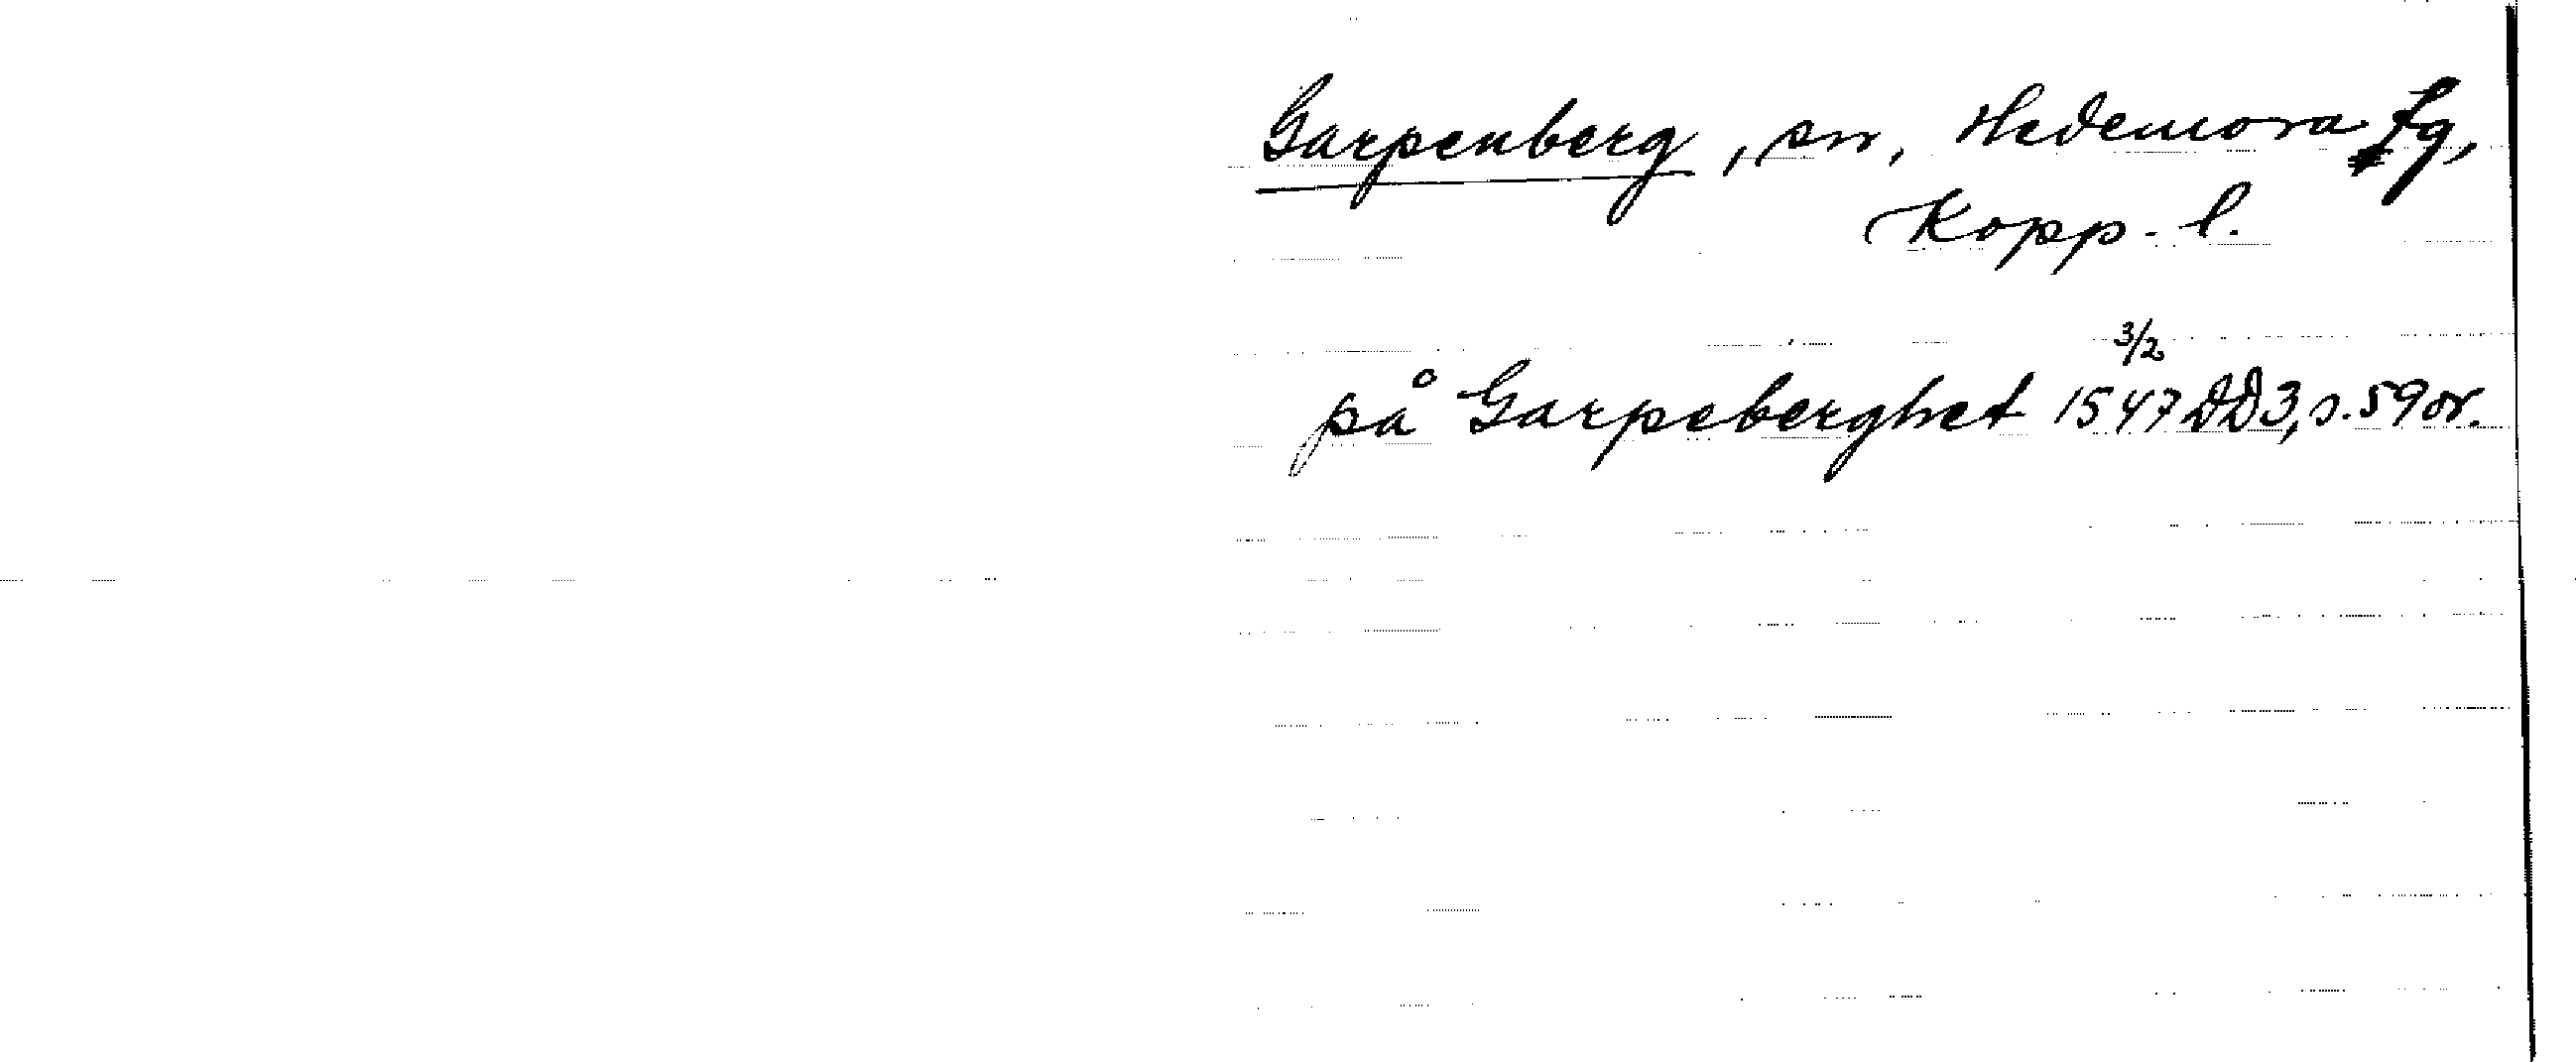 Garpenberg, sn, Hedemora fg,
Kopp. l.
3/2
på Garpeberghet 1547 DD3, s. 59 or.